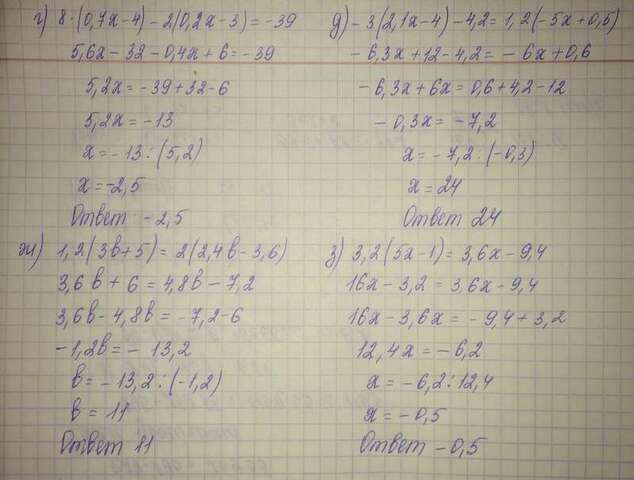 г) 8·(0,7x-4)-2(0,2x-3)=-39
5,6x-32-0,4x+6=-39
5,2x=-39+32-6
5,2x=-13
x=-13:(5,2)
x=-2,5
Ответ: -2,5
д) -3(2,1x-4)-4,2=1,2(-5x+0,5)
-6,3x+12-4,2=-6x+0,6
-6,3x+6x=0,6+4,2-12
-0,3x=-7,2
x=-7,2:(-0,3)
x=24
Ответ 24
ж) 1,2(3в+5)=2(2,4в-3,6)
3,6в+6=4,8в-7,2
3,6в-4,8в=-7,2-6
-1,2в=-13,2
в=-13,2:(-1,2)
в=11
Ответ 11
з) 3,2(5x-1)=3,6x-9,4
16x-3,2=3,6x-9,4
16x-3,6x=-9,4+3,2
12,4x=-6,2
x=-6,2:12,4
x=-0,5
Ответ -0,5